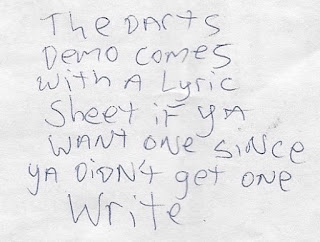 The DARts
DEMO COMES
with A Lyric
Sheet if yA
WANT ONE SiNCE
yA DiDN't get ONE
Write.